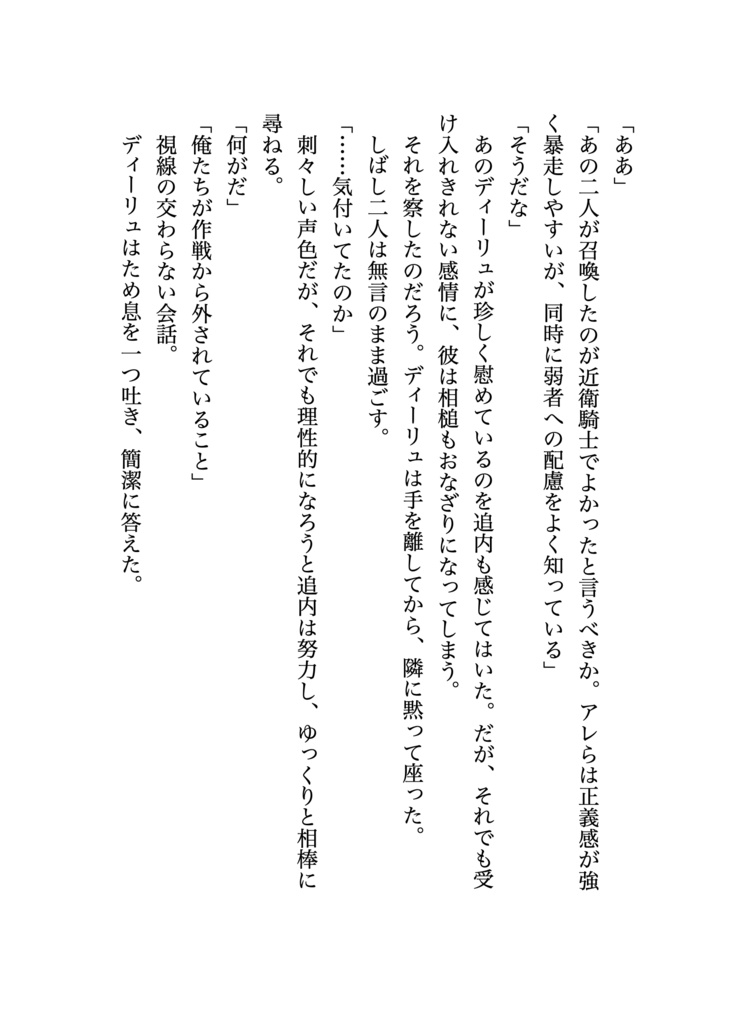 「ああ」
「あの二人が召喚したのが近衛騎士でよかったと言うべきか。アレらは正義感が強
く暴走しやすいが、同時に弱者への配慮をよく知っている」
「そうだな」
　あのディーリュが珍しく慰めているのを追内も感じてはいた。だが、それでも受
け入れきれない感情に、彼は相槌もおなざりになってしまう。
　それを察したのだろう。ディーリュは手を離してから、隣に黙って座った。
　しばし二人は無言のまま過ごす。
「……気付いてたのか」
　刺々しい声色だが、それでも理性的になろうと追内は努力し、ゆっくりと相棒に
尋ねる。
「何がだ」
「俺たちが作戦から外されていること」
　視線の交わらない会話。
　ディーリュはため息を一つ吐き、簡潔に答えた。